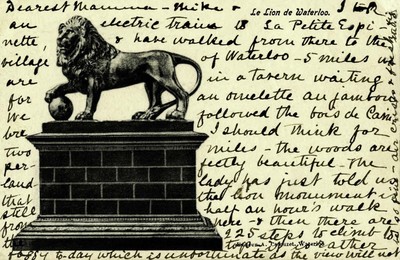 Dearest Mamma - Mike & I took
Le Lion de Waterloo.
an electric train to La Petite Espi-
nette, & have walked from there to the
village of Waterloo - 5 miles w
are in a Tavern waiting
for an omelette au jambon
We followed the bois de Cam
bre I should think for
two miles - the woods are
per fectly beautiful - the
land lady has just told us
that the lion monument is
still half an hour's walk
from here & then there are
225 steps to climb to
rather
foggy to-day which is unfortunate as the view will not